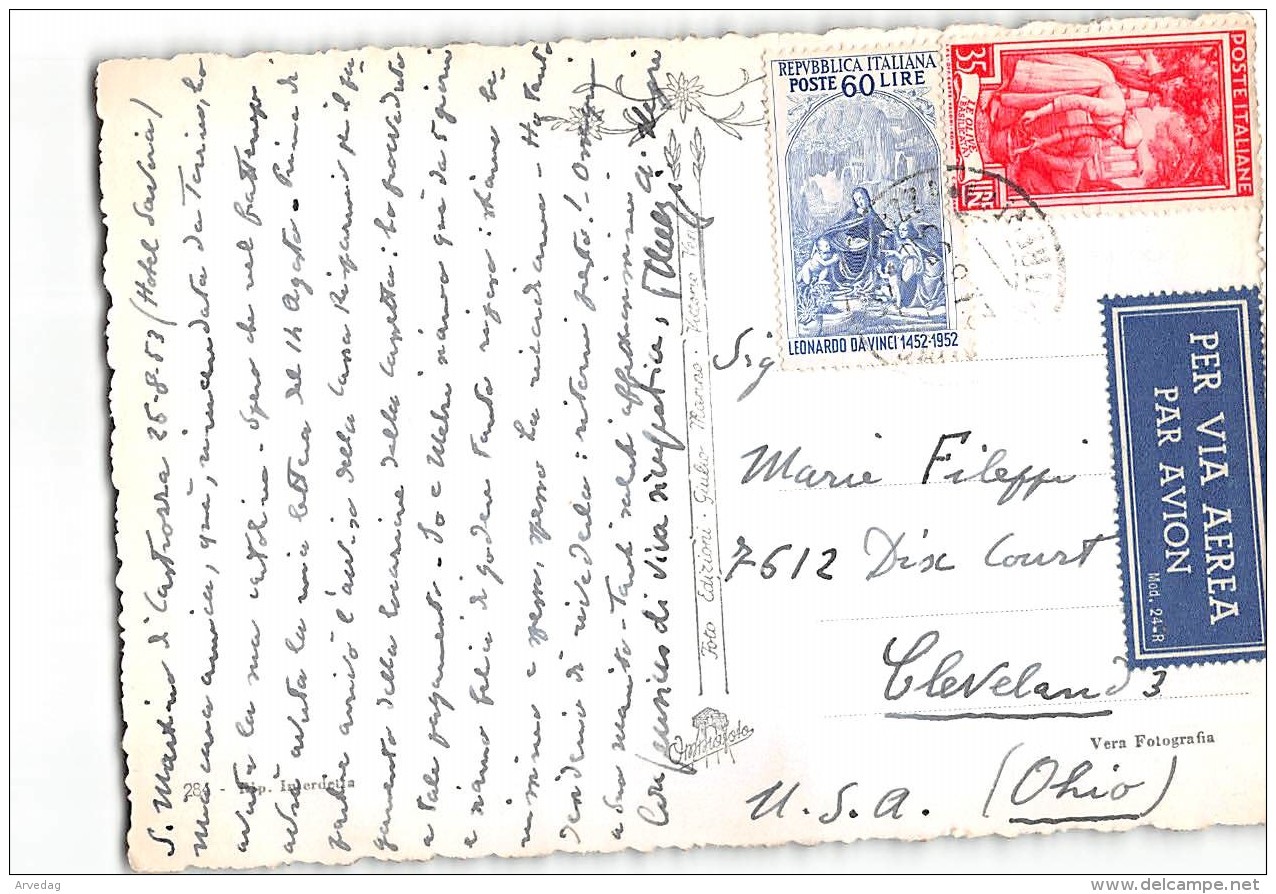 S. Martino di Castrozza 25-8-53 (Hotel Savoia)
mia cara amica, qui, rimandata da Torino, ho
avuto la sua cartolina - Spero che nel frattempo
avrà avuta la mia lettera del 14 Agosto - Prima di
partire arrivò l'avviso della Cassa Risparmio per il pa-
gamento della locazione della cassetta: ho provveduto
a tale pagamento - Io e siamo qui da 5 giorni
e siamo felici di godere tanto riposo: stiamo be-
nissimo e spesso, spesso la ricordiamo - Ho tanto
desiderio di rivederla: ritorni presto! Omaggi
a Suo marito - Tanti saluti affettuosissimi a
Lei
di viva simpatia,
28 - Rip. Interdetta
Foto Edizioni - Giulio Marino - Vittorio Ven
Ommafoto
REPVBBLICA ITALIANA
POSTE 60 LIRE
LEONARDO DA VINCI 1452-1952
POSTE ITALIANE
35
LIRE
LE OLIVE
BASILICATA
PER VIA AEREA
PAR AVION
Mod. 24-R
Sig
Marie Fileppi
7612 Dix Court
Cleveland 3
Vera Fotografia
U.S.A. (Ohio)
Arvedag
delcampe.net